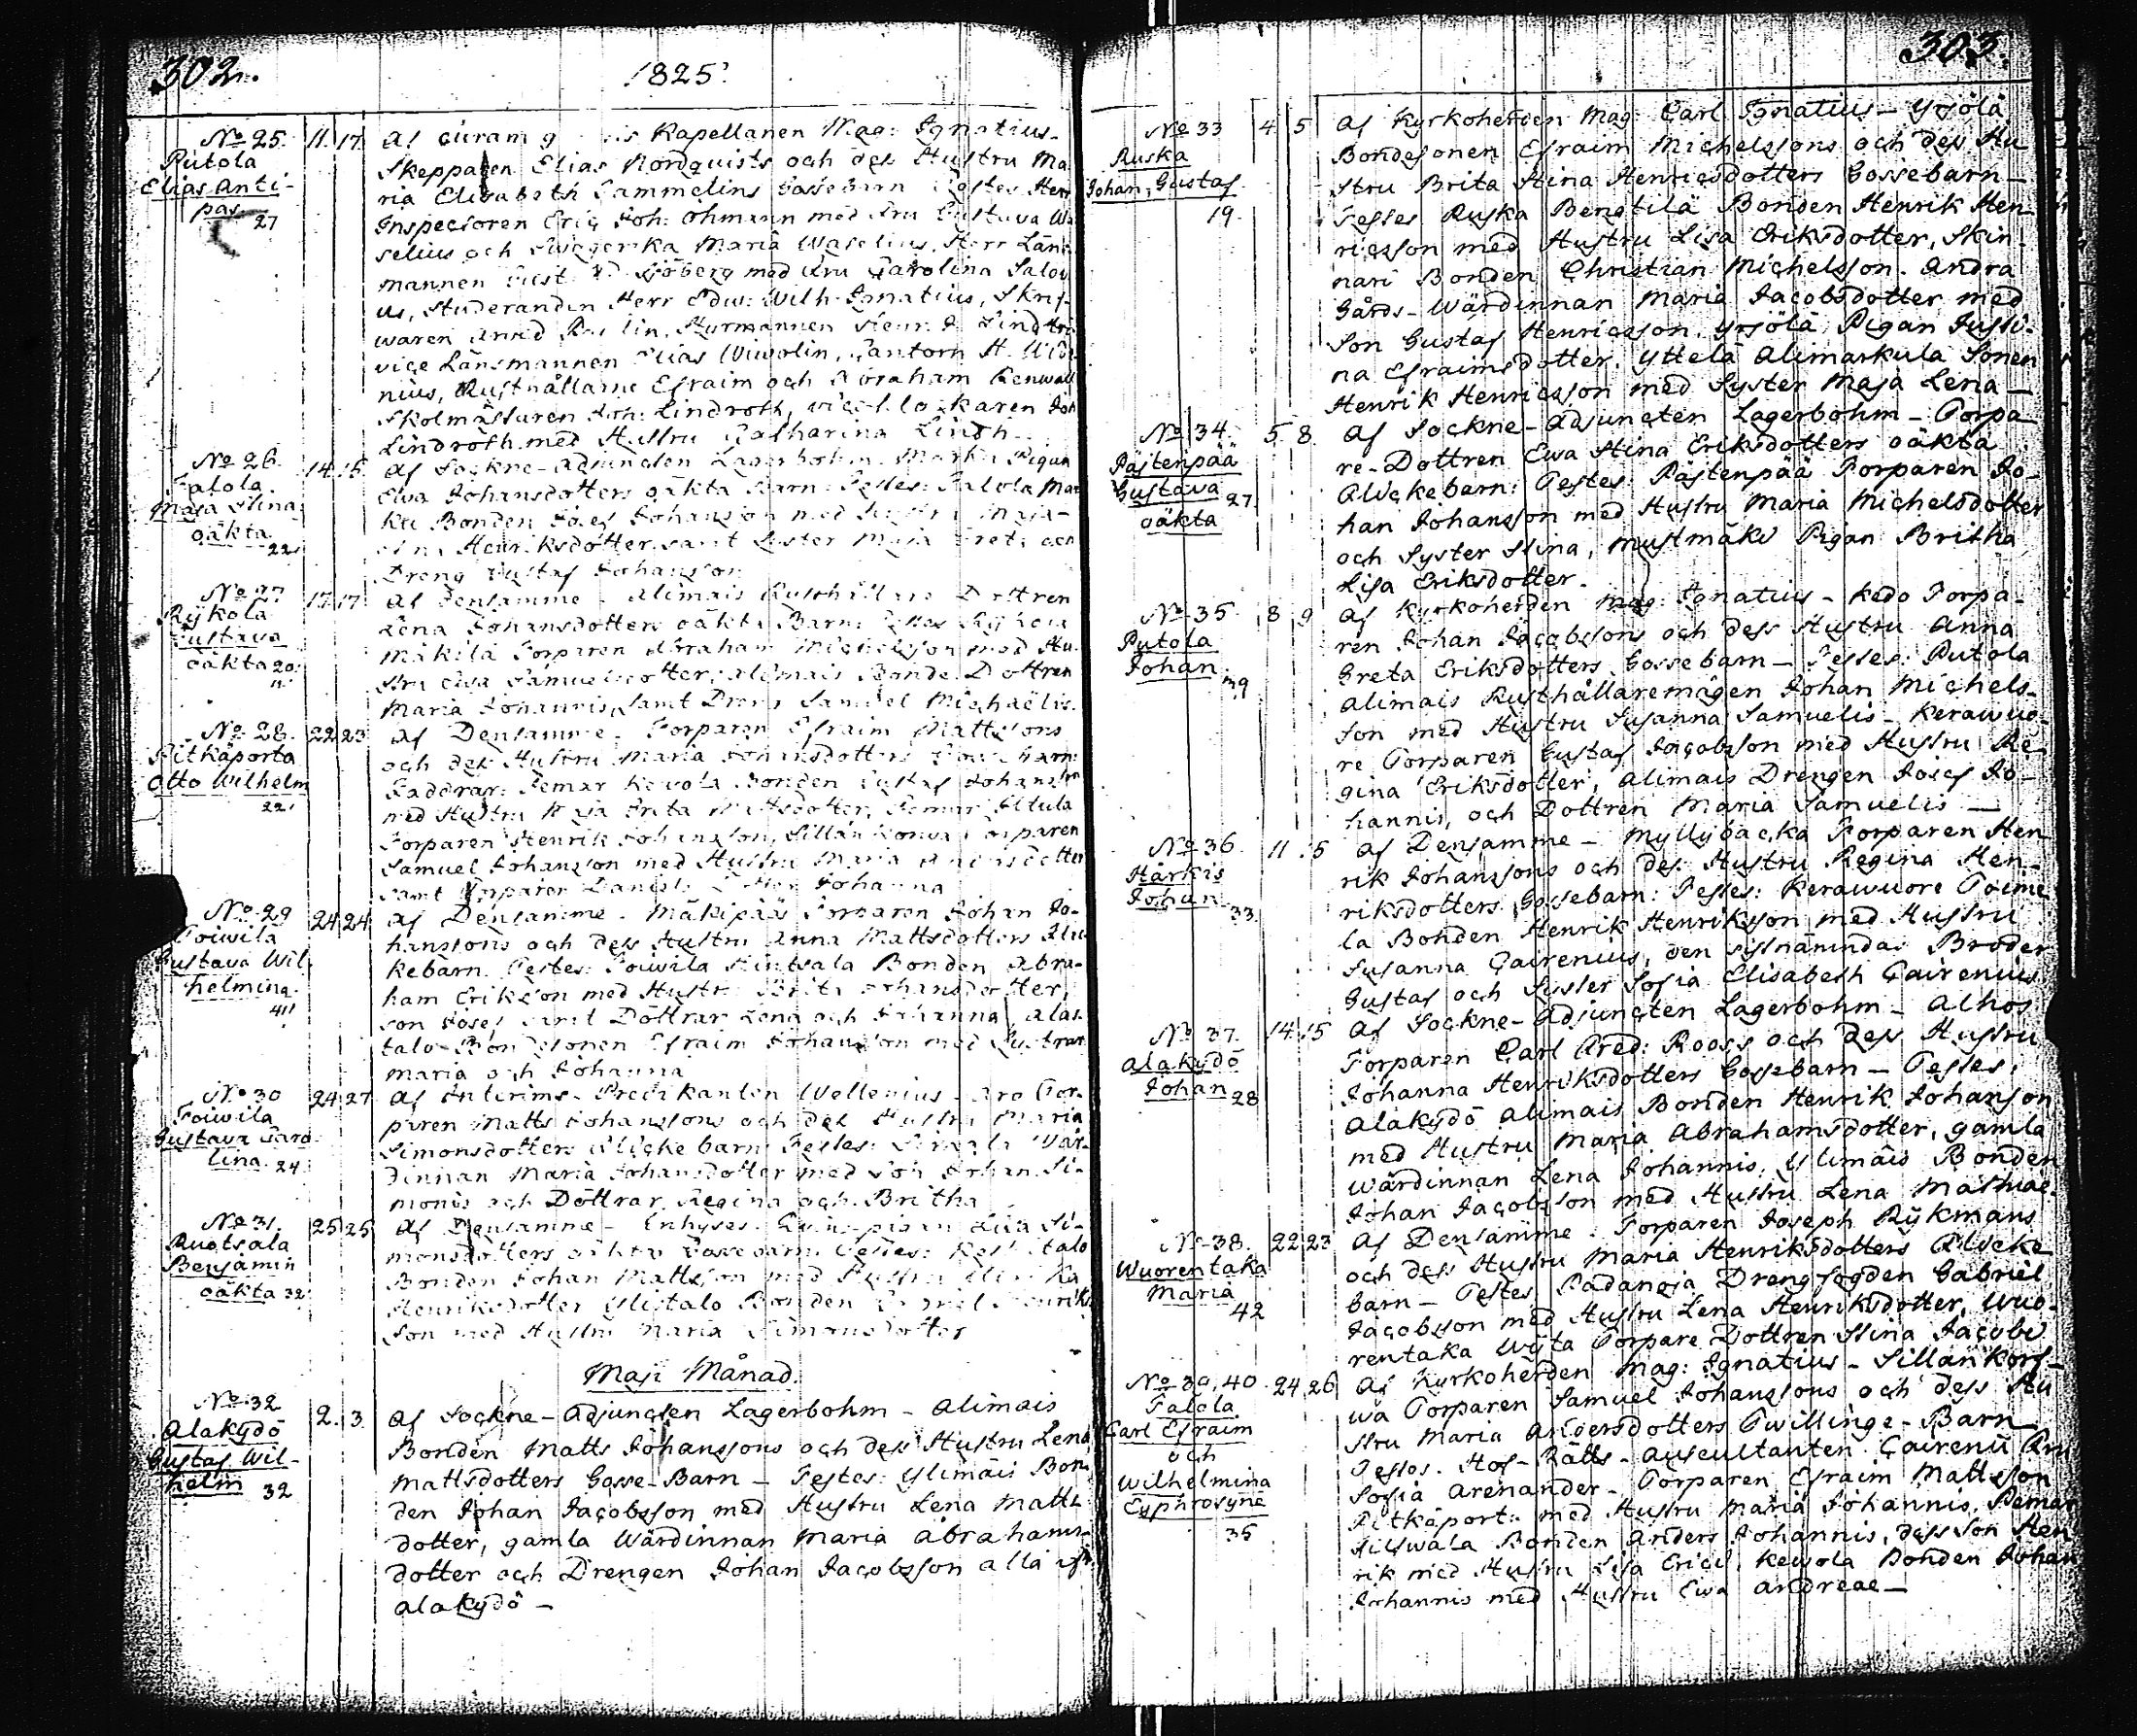 302.
1825.
No 25. 11. 17. Af curam Kapellanen Mag: Ignatius
Putola Skepparen Elias Nordquists och dess Hustru Ma
Elias Anti- ria Elisabeth Sammelins Gossebarn Testes Herr
pas Inspectoren Eric Joh: Ohmann med Fru Gustava Wa
27 selius och Swägerska Maria Waselius, Herr Läns
mannen Sjöberg med Fru Carolina
us, Studeranden Herr Edw: Wilh: Ignatius, Skrif-
waren Styrmannen
vice Länsmannen Elias Wiwolin, Cantorn
nius, Rusthållarne Efraim och Abraham
Skolmästaren Joh: Lindroth, Joh
Lindroth med Hustru Catharina Lindh
No 26. 14. 15. Af Sockne-Adjuncten Lagerbohm. Pigan
Talola Ewa Johansdotters oäkta Barn: Testes: Talola
Maja Stina Bonden Josef Johansson med Maja
oäkta Henriksdotter samt Syster Maja Greta och
22 Dreng Gustaf Johansson
No 27 17 17 Af Densamme - Alimais Dottren
Rÿkola Lena Johansdotters oäkta Barn: Testes
Gustava Mäkilä Torparen Abraham Michelsson med Hu
oäkta 20 stru Ewa Samuelsdotter, Alimais Bonde Dottren
Maria Johannis, samt Dreng Samuel Michaëlis
No 28. 22 23 Af Densamme - Torparen Efraim Mattssons
Pitkäporta och dess Hustru Maria Johansdotters Gosse barn:
Otto Wilhelm Faddrar: Pemar Kewola Bonden Gustaf Johansson
22 med Hustru Maja Brita Mattsdotter, Pemar
Torparen Henrik Johansson, Sillän Korwa Torparen
Samuel Johansson med Hustru Maria Andersdotter
samt Torparen Johanna
No 29 24 24 Af Densamme - Mäkipää Torparen Johan Jo-
Toiwila hanssons och dess Hustru Anna Mattsdotters Flic
Gustava Wil- kebarn. Testes: Toiwila Bonden Abra-
helmina ham Eriksson med Hustru Brita Johansdotter,
41 son Josef samt Döttrar Lena och Johanna, Alas-
talo Bondesonen Efraim Johansson med Systrar
Maria och Johanna
No 30 24 27 Af Interims-Predikanten Wellenius - Tor-
Toiwila paren Matts Johanssons och dess Hustru Maria
Gustava Caro- Simonsdotters Flickebarn Testes: Wär-
lina 24 dinnan Maria Johansdotter med Son Johan Si-
monis och Döttrar Regina och Britha
No 31. 25 25 Af Densamme - Enhyses Lisa Si-
Ruotsala monsdotters oäkta Gossebarn. Testes: talo
Benjamin Bonden Johan Mattsson med Hustru Ulrika
oäkta 32 Henriksdotter Ylistalo Bonden Gabriel Henriks-
son med Hustru Maria Simonsdotter
Maji Månad.
No 32 2. 3. Af Sockne-Adjuncten Lagerbohm - Alimais
Alakÿdö Bonden Matts Johanssons och dess Hustru Lena
Gustaf Wil- Mattsdotters Gosse-Barn - Testes: Ylimäis Bon-
helm 32 den Johan Jacobsson med Hustru Lena Matts
dotter, gamla Wärdinnan Maria Abrahams-
dotter och Drengen Johan Jacobsson alla ifr.
Alakÿdö -
303.
No 33 4. 5 Af Kyrkoherden Mag: Carl Ignatius - Yrjölä
Ruska Bondesonen Efraim Michelssons och dess Hu
Johan Gustaf stru Brita Stina Henricsdotters Gossebarn -
19. Testes Ruska Bengtilä Bonden Henrik Hen-
ricsson med Hustru Lisa Eriksdotter, Skin-
nari Bonden Christian Michelsson. Andra
Gårds-Wärdinnan Maria Jacobsdotter med
Son Gustaf Henricsson, Yrjölä Pigan Justi-
na Efraimsdotter. Yttelä Alimarkula Sonen
Henrik Henricsson med Syster Maja Lena -
No 34. 5. 8. Af Sockne-Adjuncten Lagerbohm - Torpa
Päjtenpää re-Dottren Ewa Stina Eriksdotters oäkta
Gustava 27 Flickebarn: Testes: Päjtenpää Torparen Jo-
oäkta han Johansson med Hustru Maria Michelsdotter
och Syster Stina, Mustmäki Pigan Britha
Lisa Eriksdotter.
No 35. 8 9 Af Kyrkoherden Mag: Ignatius - Kedo Torpa-
Putola ren Johan Jacobssons och dess Hustru Anna
Johan 39 Greta Eriksdotters Gossebarn - Testes: Putola
Alimais Rusthållaremågen Johan Michels-
son med Hustru Susanna Samuelis - Kerawuo-
re Torparen Gustaf Jacobsson med Hustru Re-
gina Eriksdotter, Alimais Drengen Josef Jo-
hannis, och Dottren Maria Samuelis -
No 36. 11. 15 Af Densamme - Myllÿbacka Torparen Hen-
Härkis rik Johanssons och dess Hustru Regina Hen-
Johan 33 riksdotters Gossebarn: Testes: Kerawuore Toime
la Bonden Henrik Henriksson med Hustru
Susanna Cairenius, den sistnämndas Broder
Gustaf och Syster Sofia Elisabeth Cairenius
No 37. 14 15 Af Sockne-Adjuncten Lagerbohm - Alhos
Alakÿdö Torparen Carl Fred: Rooss och dess Hustru
Johan 28 Johanna Henriksdotters Gossebarn - Testes,
Alakÿdö Alimais Bonden Henrik Johansson
med Hustru Maria Abrahamsdotter, gamla
wärdinnan Lena Johannis, Ylimäis Bonden
Johan Jacobsson med Hustru Lena Mathiae.
No 38. 22 23 Af Densamme: Torparen Joseph Rÿkmans
Wuorentaka och dess Hustru Maria Henriksdotters Flicke
Maria barn - Testes Padanoja Drengfogden Gabriel
42 Jacobsson med Hustru Lena Henriksdotter, Wuo-
rentaka Torpare Dottren Stina Jacobi
No 39, 40. 24 26 Af Kyrkoherden Mag: Ignatius - Sillän Kor-
Talola wa Torparen Samuel Johanssons och dess Hu
Carl Efraim stru Maria Andersdotters Twillinge-Barn
och Testes. Hof-Rätts-Auscultanten Cairenii Fru
Wilhelmina Sofia Arenander - Torparen Efraim Mattsson
Euphrosyne Pitkäporta med Hustru Maria Johannis. Pemar
35 Bonden Anders Johannis, dess Son Hen
rik med Hustru Lisa Erici, Kewola Bonden Johan
Johannis med Hustru Ewa Andreae -